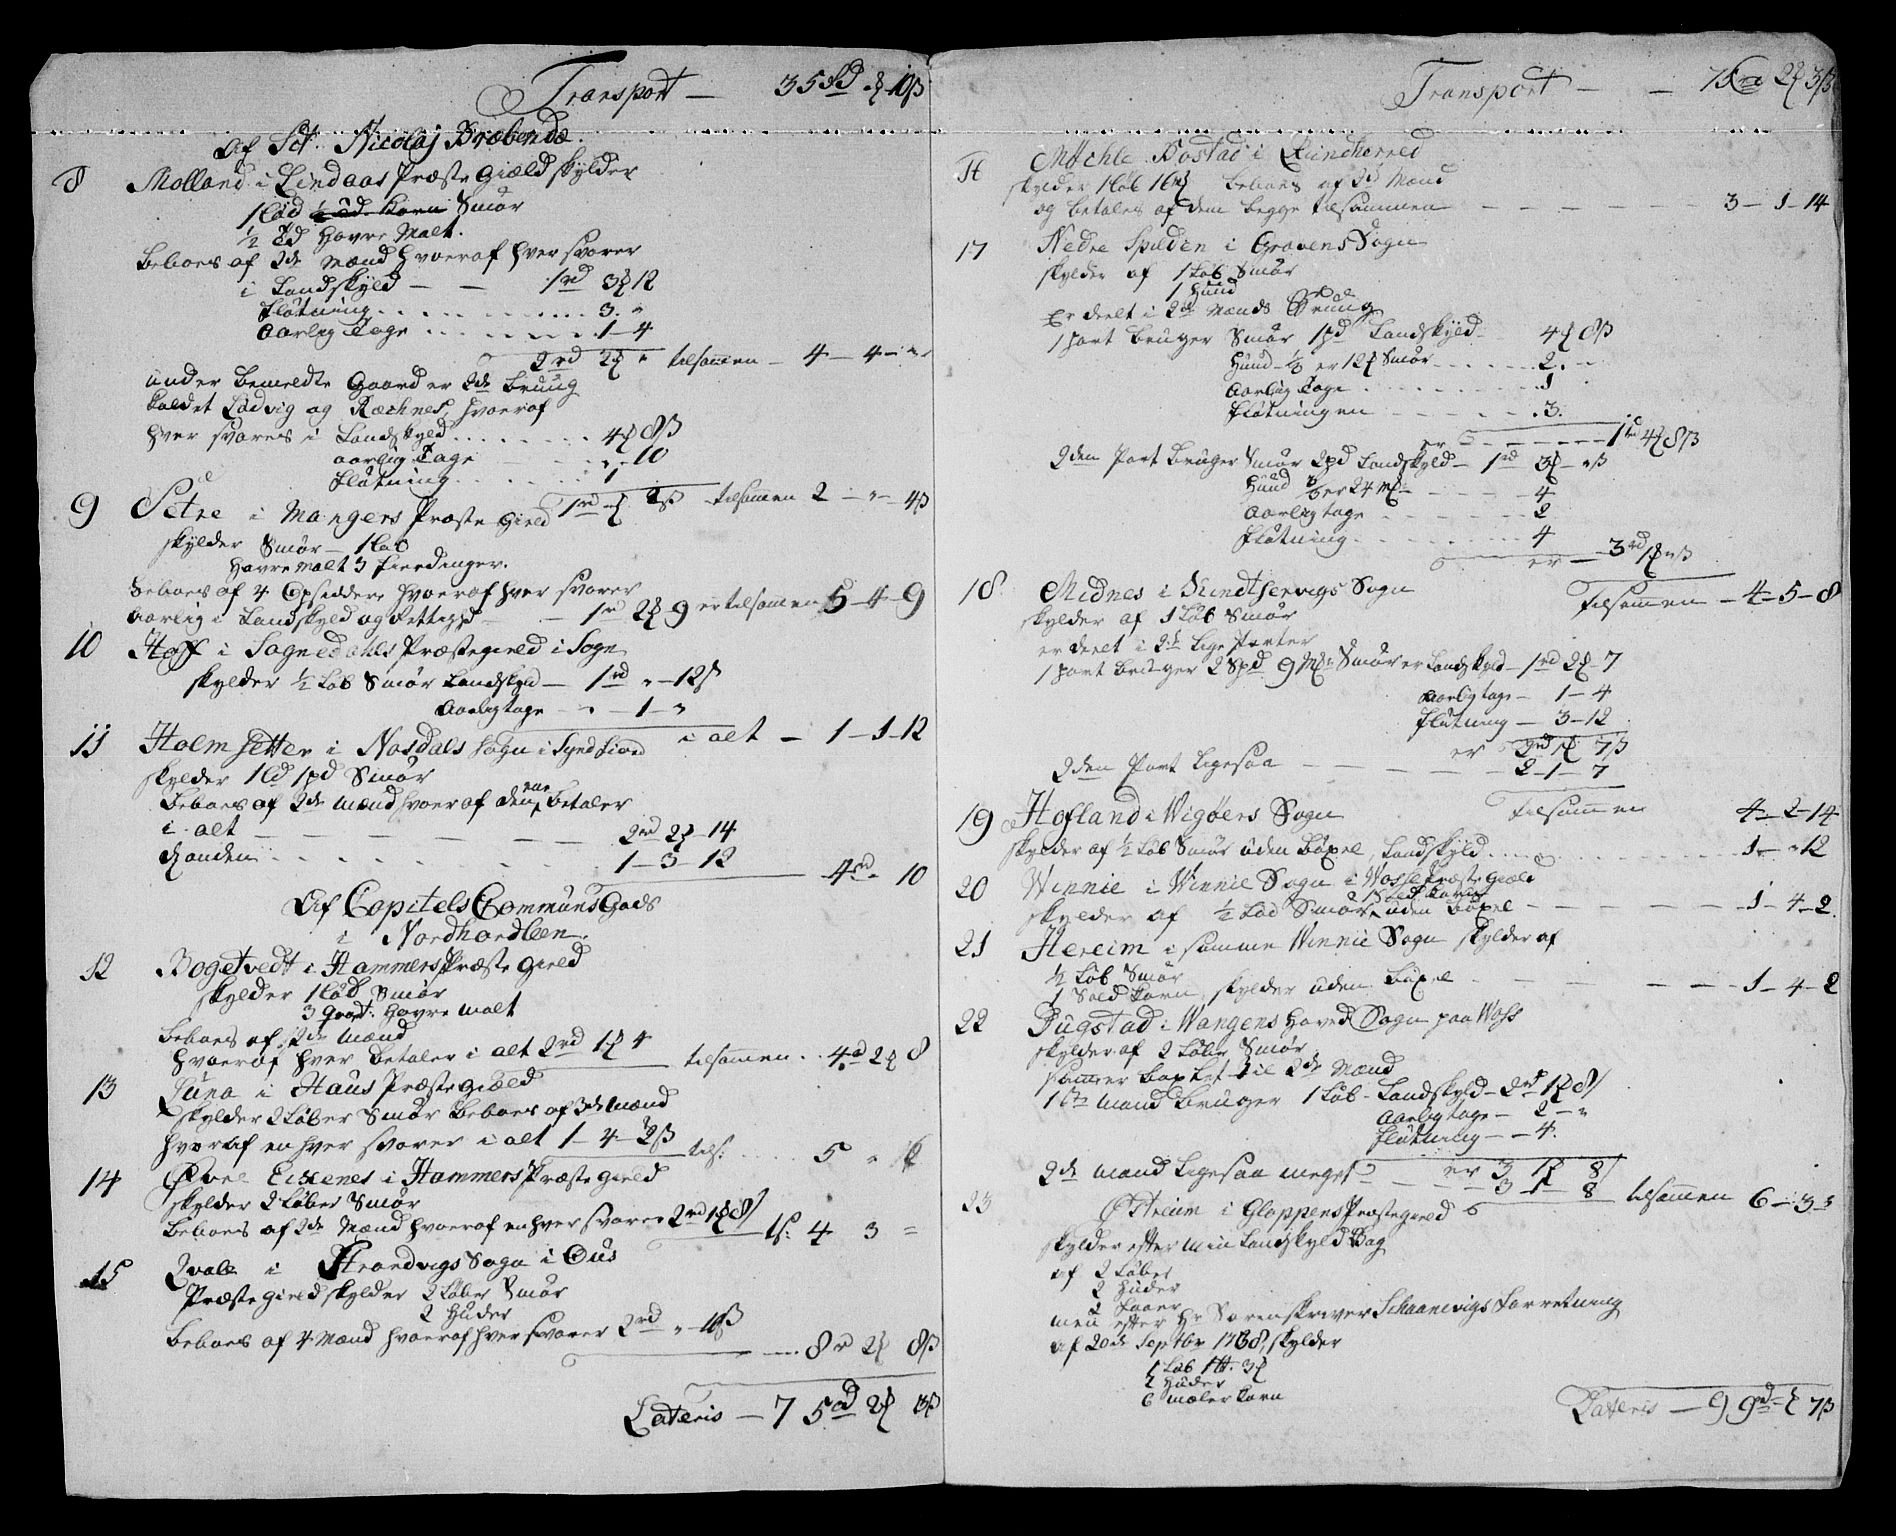 Transport — 35 rd - 10 ß
Af Sct. Nicolaj Præbende.
8 Molland i Lindaas Præste Gield skylder
1 Løb Smør
½ td Havre Malt.
Beboes af 2de Mænd hvoraf hver svarer
i Landskyld — — 1 rd 3 12
Fløtning 3 "
Aarlig Tage 1-4
2 rd 2 " tilsammen — 4-4-"
under bemeldte Gaard er 2de Bruug
kaldet Ludvig og Rechnes, hvoraf
hver svares i Landskyld 4 8 ß
aarlig Tage " - 10
Fløtning 1
9 Setre i Mangers Præste Gield 1 rd - 2 ß tilsammen 2 - " - 4 ß
skylder Smør — 1 Løb
Havre Malt 3 Fierdinger.
Beboes af 4 Opsiddere hvoraf hver svarer
Aarlig i Landskyld og — 1 rd 2 9 er tilsammen 5-4-9
10 Hoff i Sognedahls Præstegield i Sogn
skylder ½ Løb Smør Landskyld — 1 rd " - 12 ß
Aarlig tage — " — 1 — "
i alt — 1-1-12
11 Holmsetter i Nosdals Sogn i Syndfiord
skylder 1 Ld 1 pd Smør
Beboes af 2de mænd hvoraf den ene betaler
i alt — — — 2 rd 2 14
d anden 1-3-12
4 rd " 10
Af Capitels Communs Gods
i Nordhordleen.
12 Bogetvedt i Hammers Præste Gield
skylder 1 Løb Smør
3 Havre malt
Beboes af 2de mænd
hvoraf hver betaler i alt 2 rd 1 4 tilsamen 4 rd 2 8
13 Juna i Haus Præste gield
skylder 2 Løber Smør Beboes af 3de mænd
hvoraf en hver svarer i alt 1-4-2 ß tils: 5 " 6
14 Øvre Eikenes i Hammers Præste Gield
skylder 2 Løber Smør
Beboes af 2de Mænd hvoraf en hver svarer 2 rd 1 8 ts: 4 3 =
15 Qvale i Strandvigs Sogn i Ous
Præste gield skylder 2 Løber Smør
2 Huder
Beboes af 4 Mænd hvoraf hver svarer 2 rd " - 10 ß
8 rd 2 8 ß
Lateris — 75 rd 2 3 ß
Transport — — 75 rd 2 3 ß
16 Møchle Bostad i Qvindherred
skylder 1 Løb Beboes af 2de Mænd
og betales af dem begge tilsammen — 3-1-14
17 Nedre Spilden i Gravens Sogn
skylder af 1 Løb Smør
1 Huud
Er deelt i 2de Mænds Bruug
1 part bruger Smør 1 pd Landskyld 4 8 ß
Huud ⅓ er 12 Smør 2. -
Aarlig Tage 1
Fløtningen 3.
er — 1 rd 4 8 ß
2den Part bruger Smør 2 pd Landskyld — 1 rd 3 - " ß
Huud ⅔ er 24 4
Aarlig tage 2
Fløtning 4
er — 3 rd 1 " ß
Tilsammen — 4-5-8
18 Midnes i Kundtservigs Sogn
skylder af 1 Løb Smør
er deelt i 2de Lige Parter
1 part bruger 2 Spd 9 Smør er Landskyld — 1 rd 2 7
Aarlig tage — 1-4
Fløtning — 3-12
er 2 rd 1 7 ß
2den Part Ligesaa — — 2-1-7
tilsammen 4-2-14
19 Hofland i Vigøers Sogn
skylder af ½ Løb Smør uden Bøxel, Landskyld 1-"12
20 Winnie i Winnie Sogn i Vosse Præste Gield
1 Sold Korn
skylder af ½ Løb Smør uden Bøxel — 1-4-2.
21 Hereim i samme Winnie Sogn skylder af
½ Løb Smør
1 Sold Korn, skylder uden Bøxel — 1-4-2
22 Rugstad i Wangens Hoved Sogn paa Woss
skylder af 2 Løber Smør
som er boxlet til 2de Mænd
1ste mand bruger 1 Løb - Landskyld — 2 rd 1 8
Aarlig tage — 2-"
Fløtning — 4.
er 3 1 8
2de mand Ligesaa meget — 3 1 8 tilsammen 6-3-"
23 Østreim i Gloppens Præstegield
skylder efter min Landskyld Bog
af 2 Løber
2 Huder
2 Faaer
men efter Hr Sorenskriver Schaanevigs Forretning
af 20de Septbr 1768, skylder
1 Løb
2 Huder
6 mæler Korn
Lateris — 99 rd - 7 ß